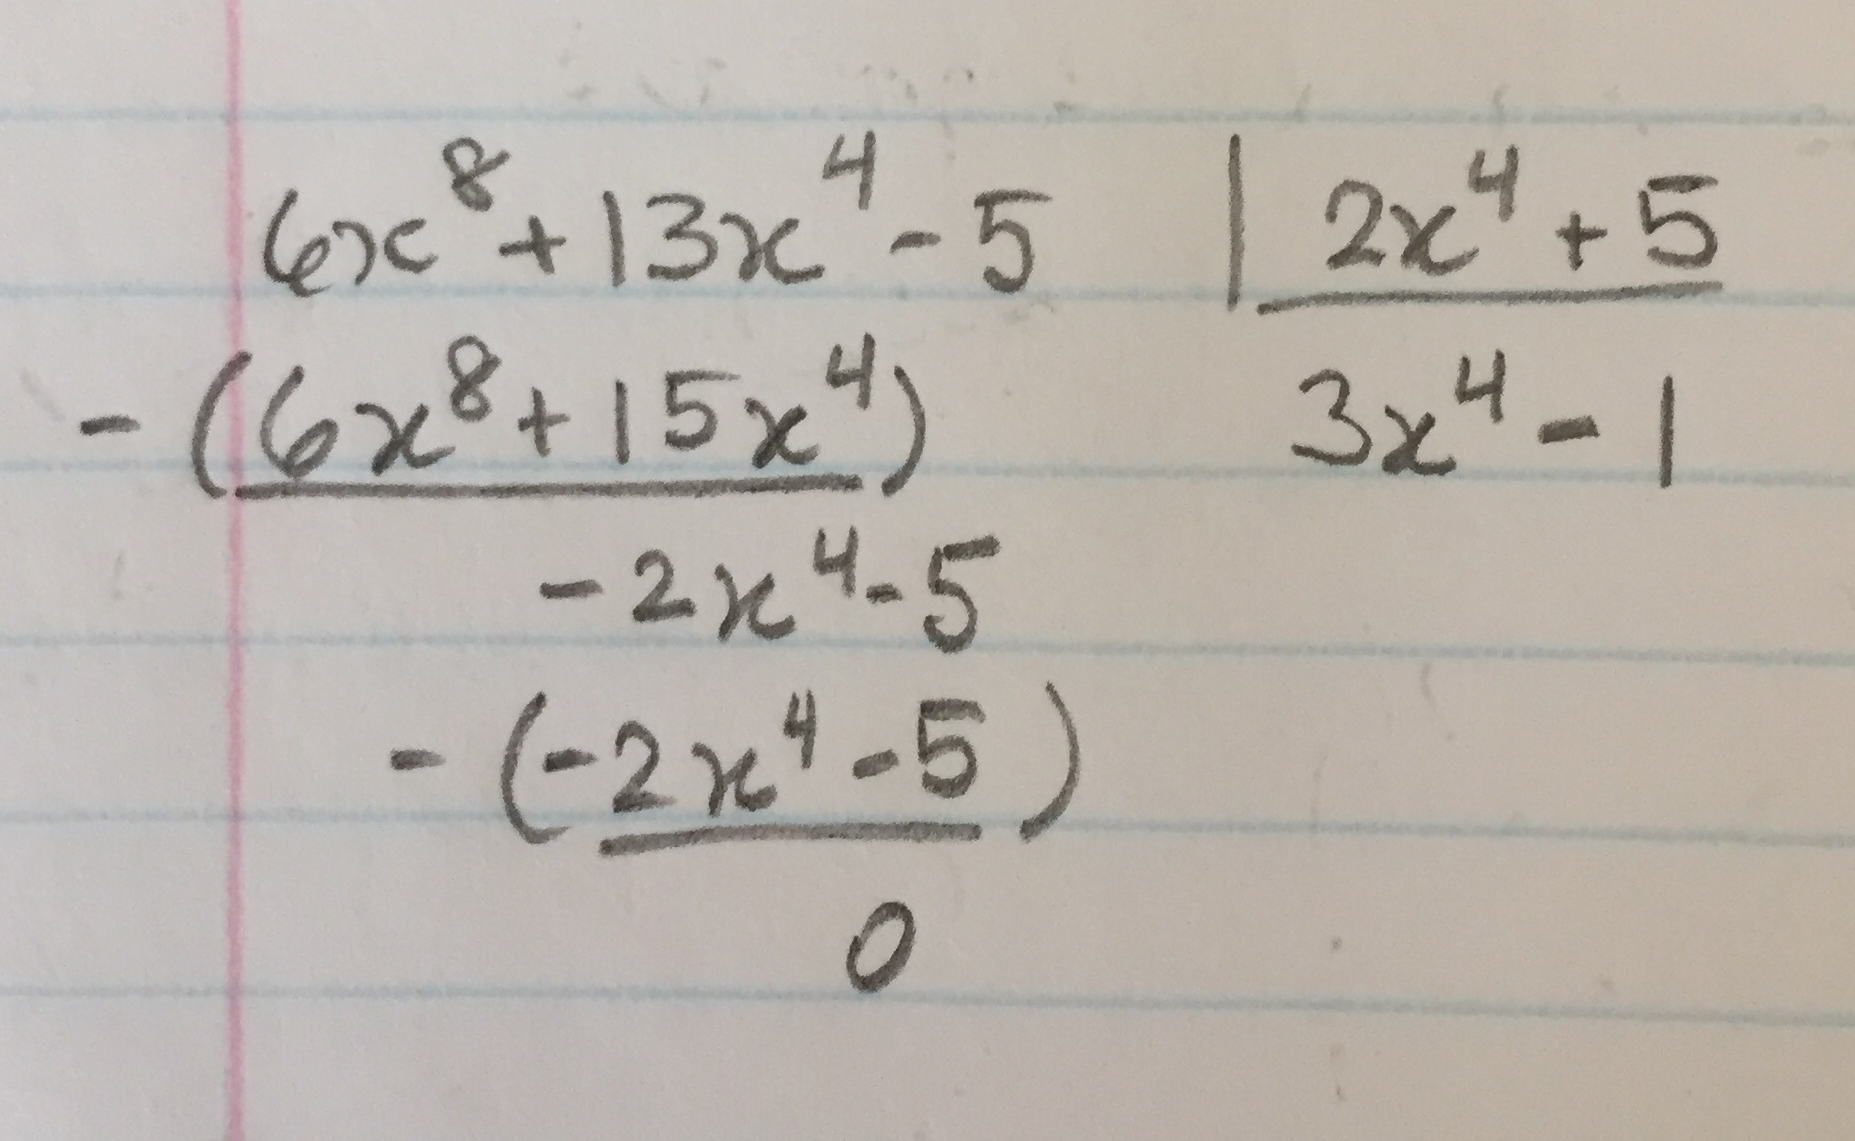 6x⁸ + 13x⁴ - 5 | 2x⁴ + 5
- (6x⁸ + 15x⁴) 3x⁴ - 1
- 2x⁴ - 5
- (-2x⁴ - 5)
0